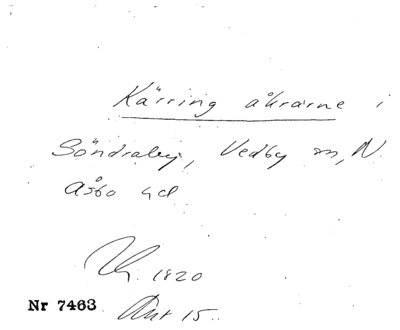 Kärring åkrarne i
Söndraby, Vedby sn, N.
Åsbo hd
1820
Nr 7463 Ant 15.